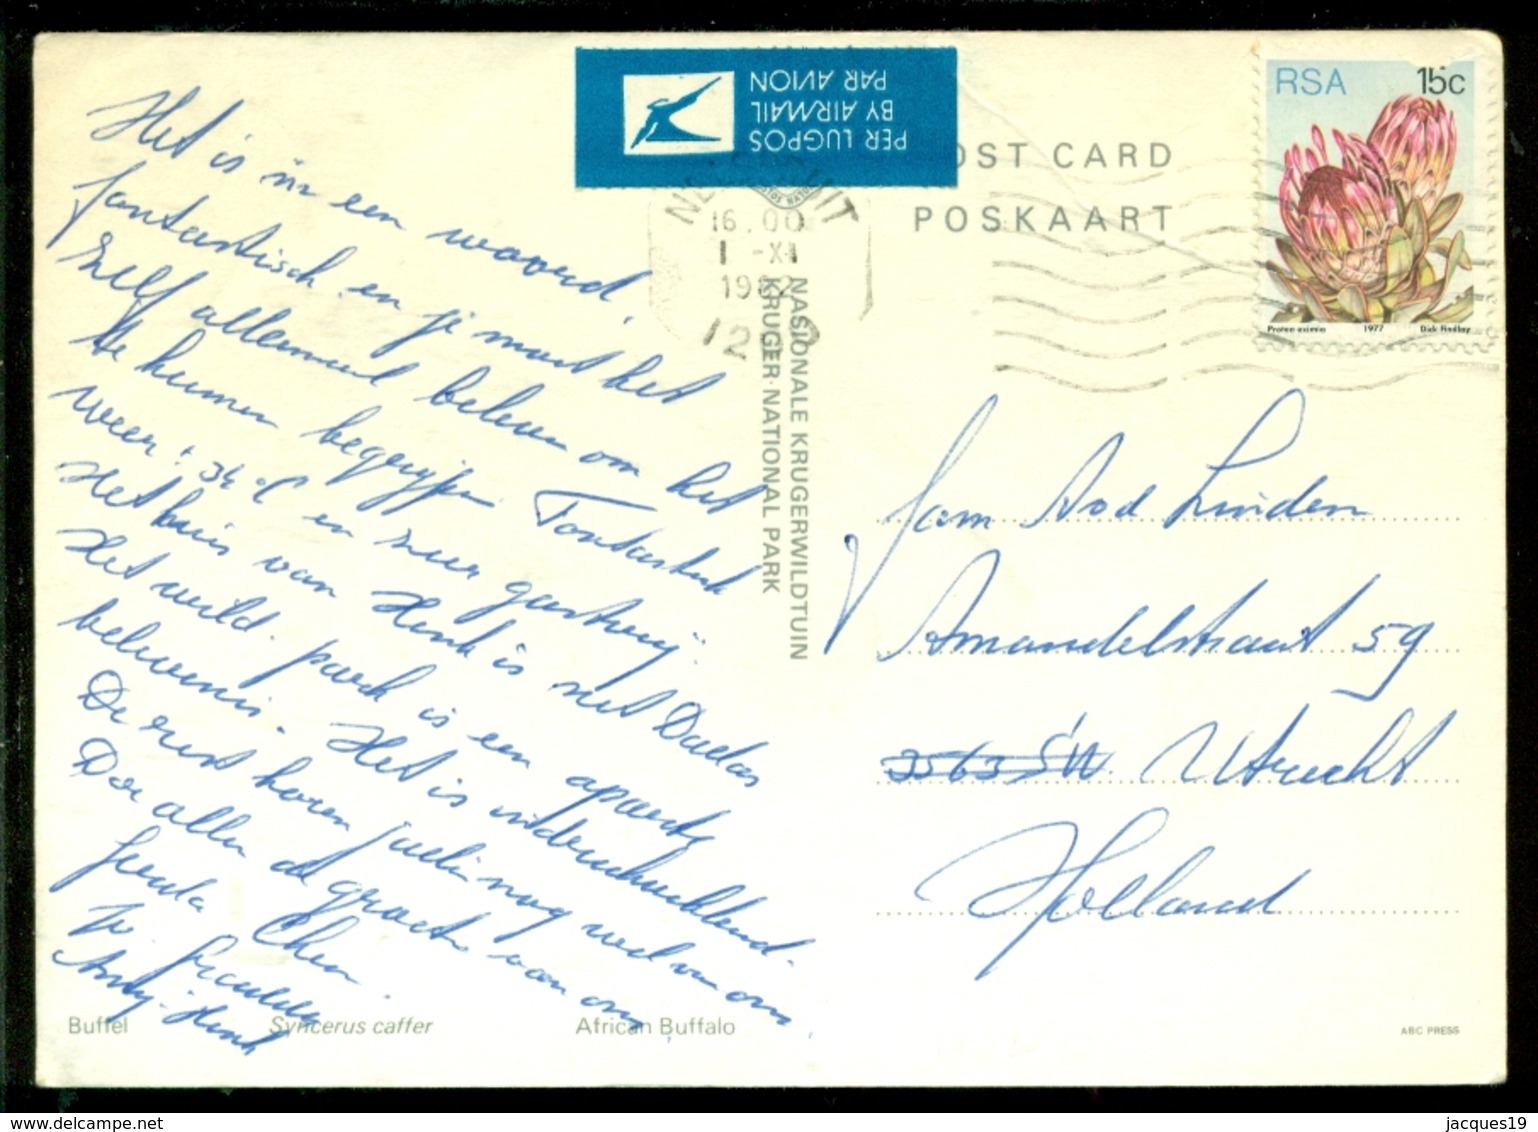 Het is in een woord
fantastisch en je moet het
zelf allemaal beleven om het
te kunnen begrijpen Fantastisch
weer ± 34 °C en zeer gastvrij.
Het huis van Henk is net Dallas
Het wild park is een aparte
belevenis. Het is indrukwekkend.
De rest horen jullie nog wel van ons
Doe allen de groeten van ons
Gerda Chen
Jo
Andy - Henk
Buffel Syncerus caffer African Buffalo
PER LUGPOS
BY AIRMAIL
PAR AVION
NASIONALE KRUGERWILDTUIN
KRUGER NATIONAL PARK
16.00
1 -XI
1982
POST CARD
POSKAART
RSA 15c
Protea eximia 1977 Dick Findlay
Fam Avd Linden
Amandelstraat 59
3563 SW. Utrecht
Holland
ABC PRESS
www.delcampe.net
jacques19